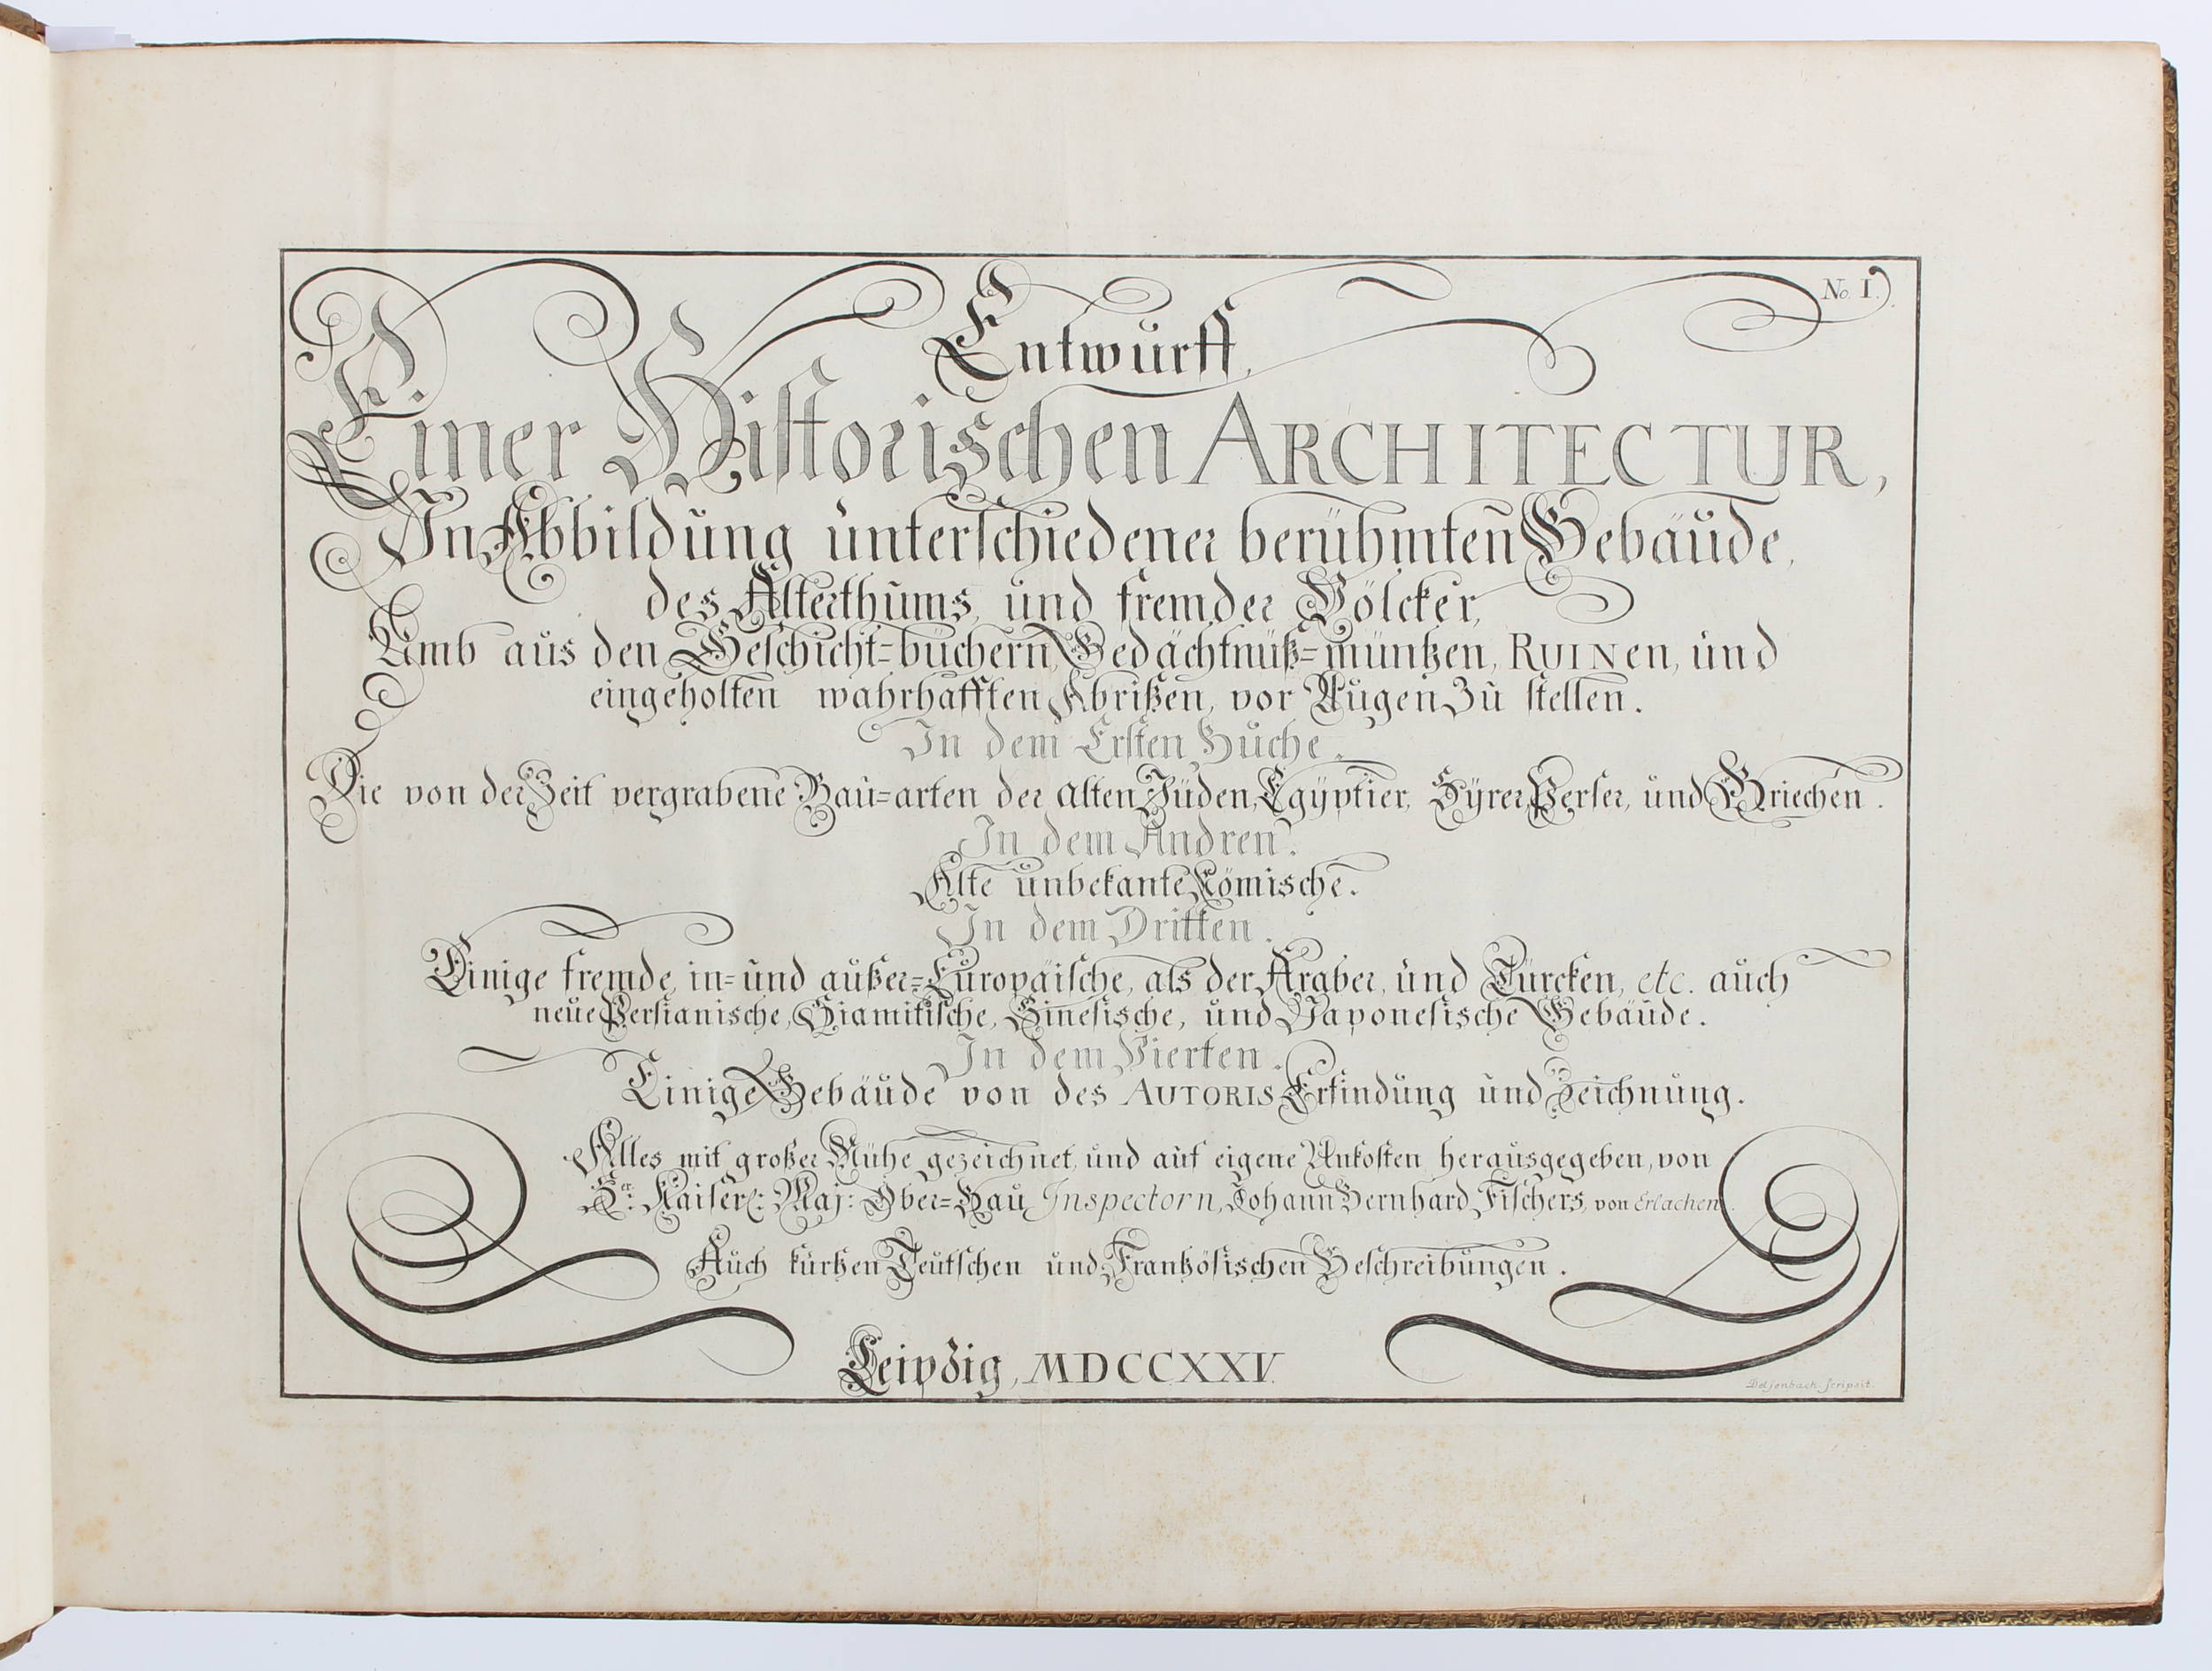 No. I.)
Entwurff
Einer Historischen ARCHITECTUR,
In Abbildung unterschiedener berühmten Gebäude,
des Alterthums, und fremder Völcker,
Umb aus den Geschicht=büchern, Gedächtnüß=müntzen, RUINen, und
eingeholten wahrhafften Abrißen, vor Augen zu stellen.
In dem Ersten Buche.
Die von der Zeit vergrabene Bau=arten der alten Jüden, Egÿptier, Sÿrer, Perser, und Griechen.
In dem Andren.
Alte unbekante Römische.
In dem Dritten.
Einige fremde, in= und außer=Europäische, als der Araber, und Türcken, etc. auch
neue Persianische, Siamitische, Sinesische, und Japonesische Gebäude.
In dem Vierten.
Einige Gebäude von des AUTORIS Erfindung und Zeichnung.
Alles mit großer Mühe gezeichnet, und auf eigene Unkosten herausgegeben, von
Sr. Kaiserl: Maj: Ober=Bau Inspectorn, Johann Bernhard Fischers, von Erlachen.
Auch kurtzen Teutschen und Frantzösischen Beschreibungen.
Leipzig, MDCCXXV.
scripsit.